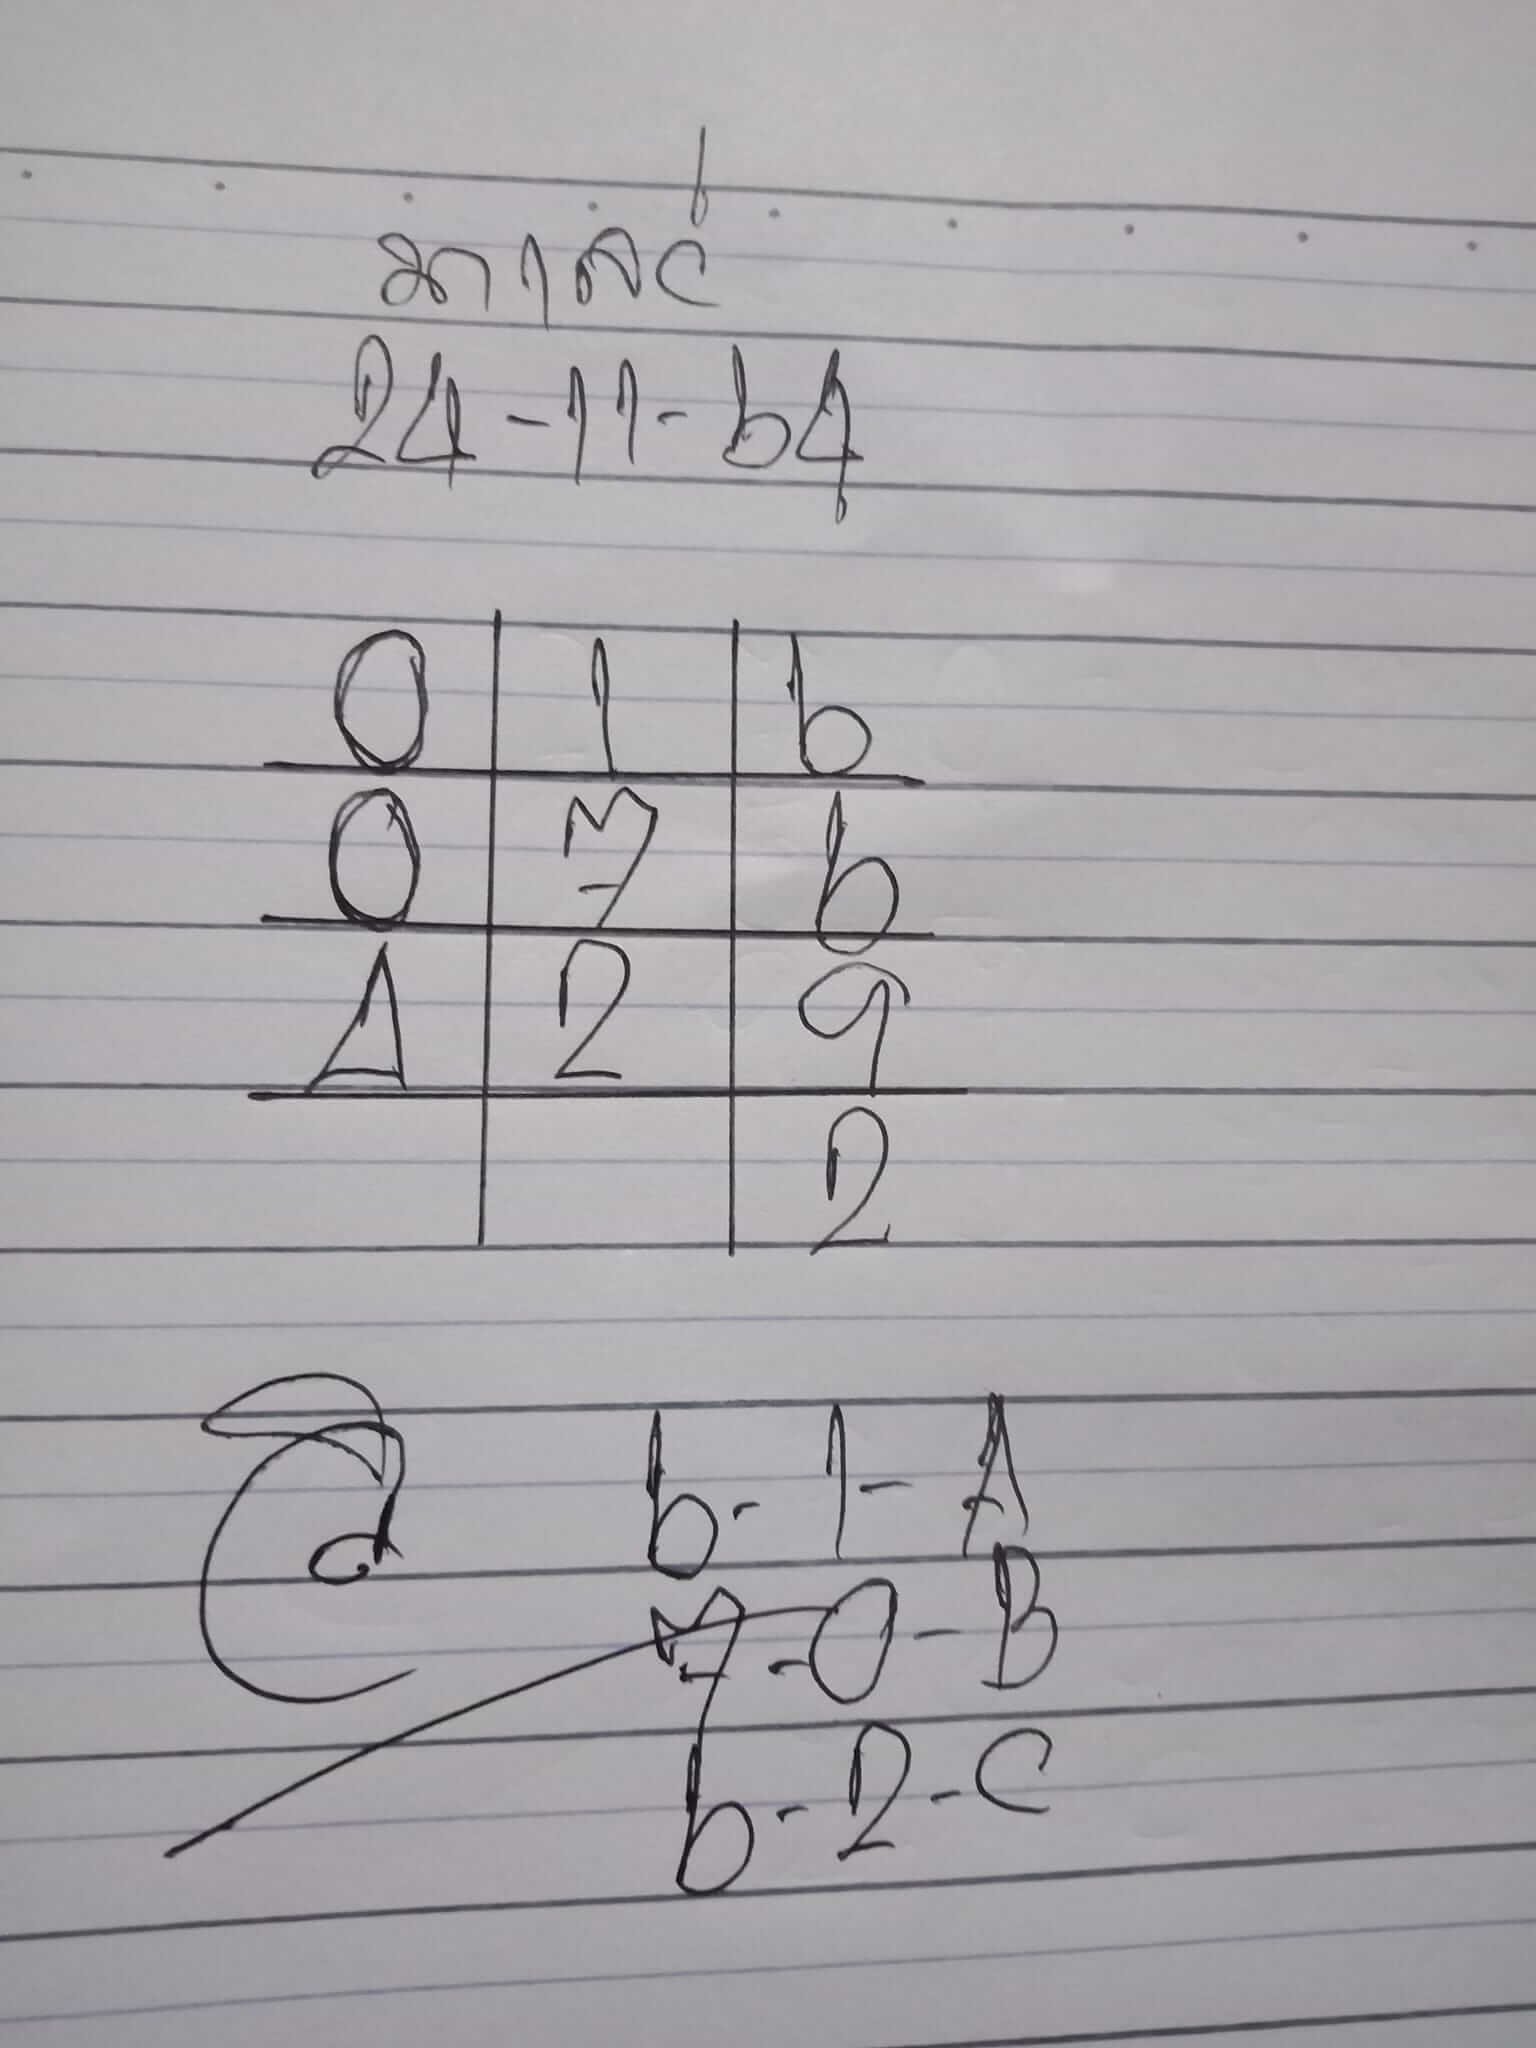 24-11-64
0 1 6
0 7 6
4 2 9
2
6-1-A
7-0-B
6-2-C